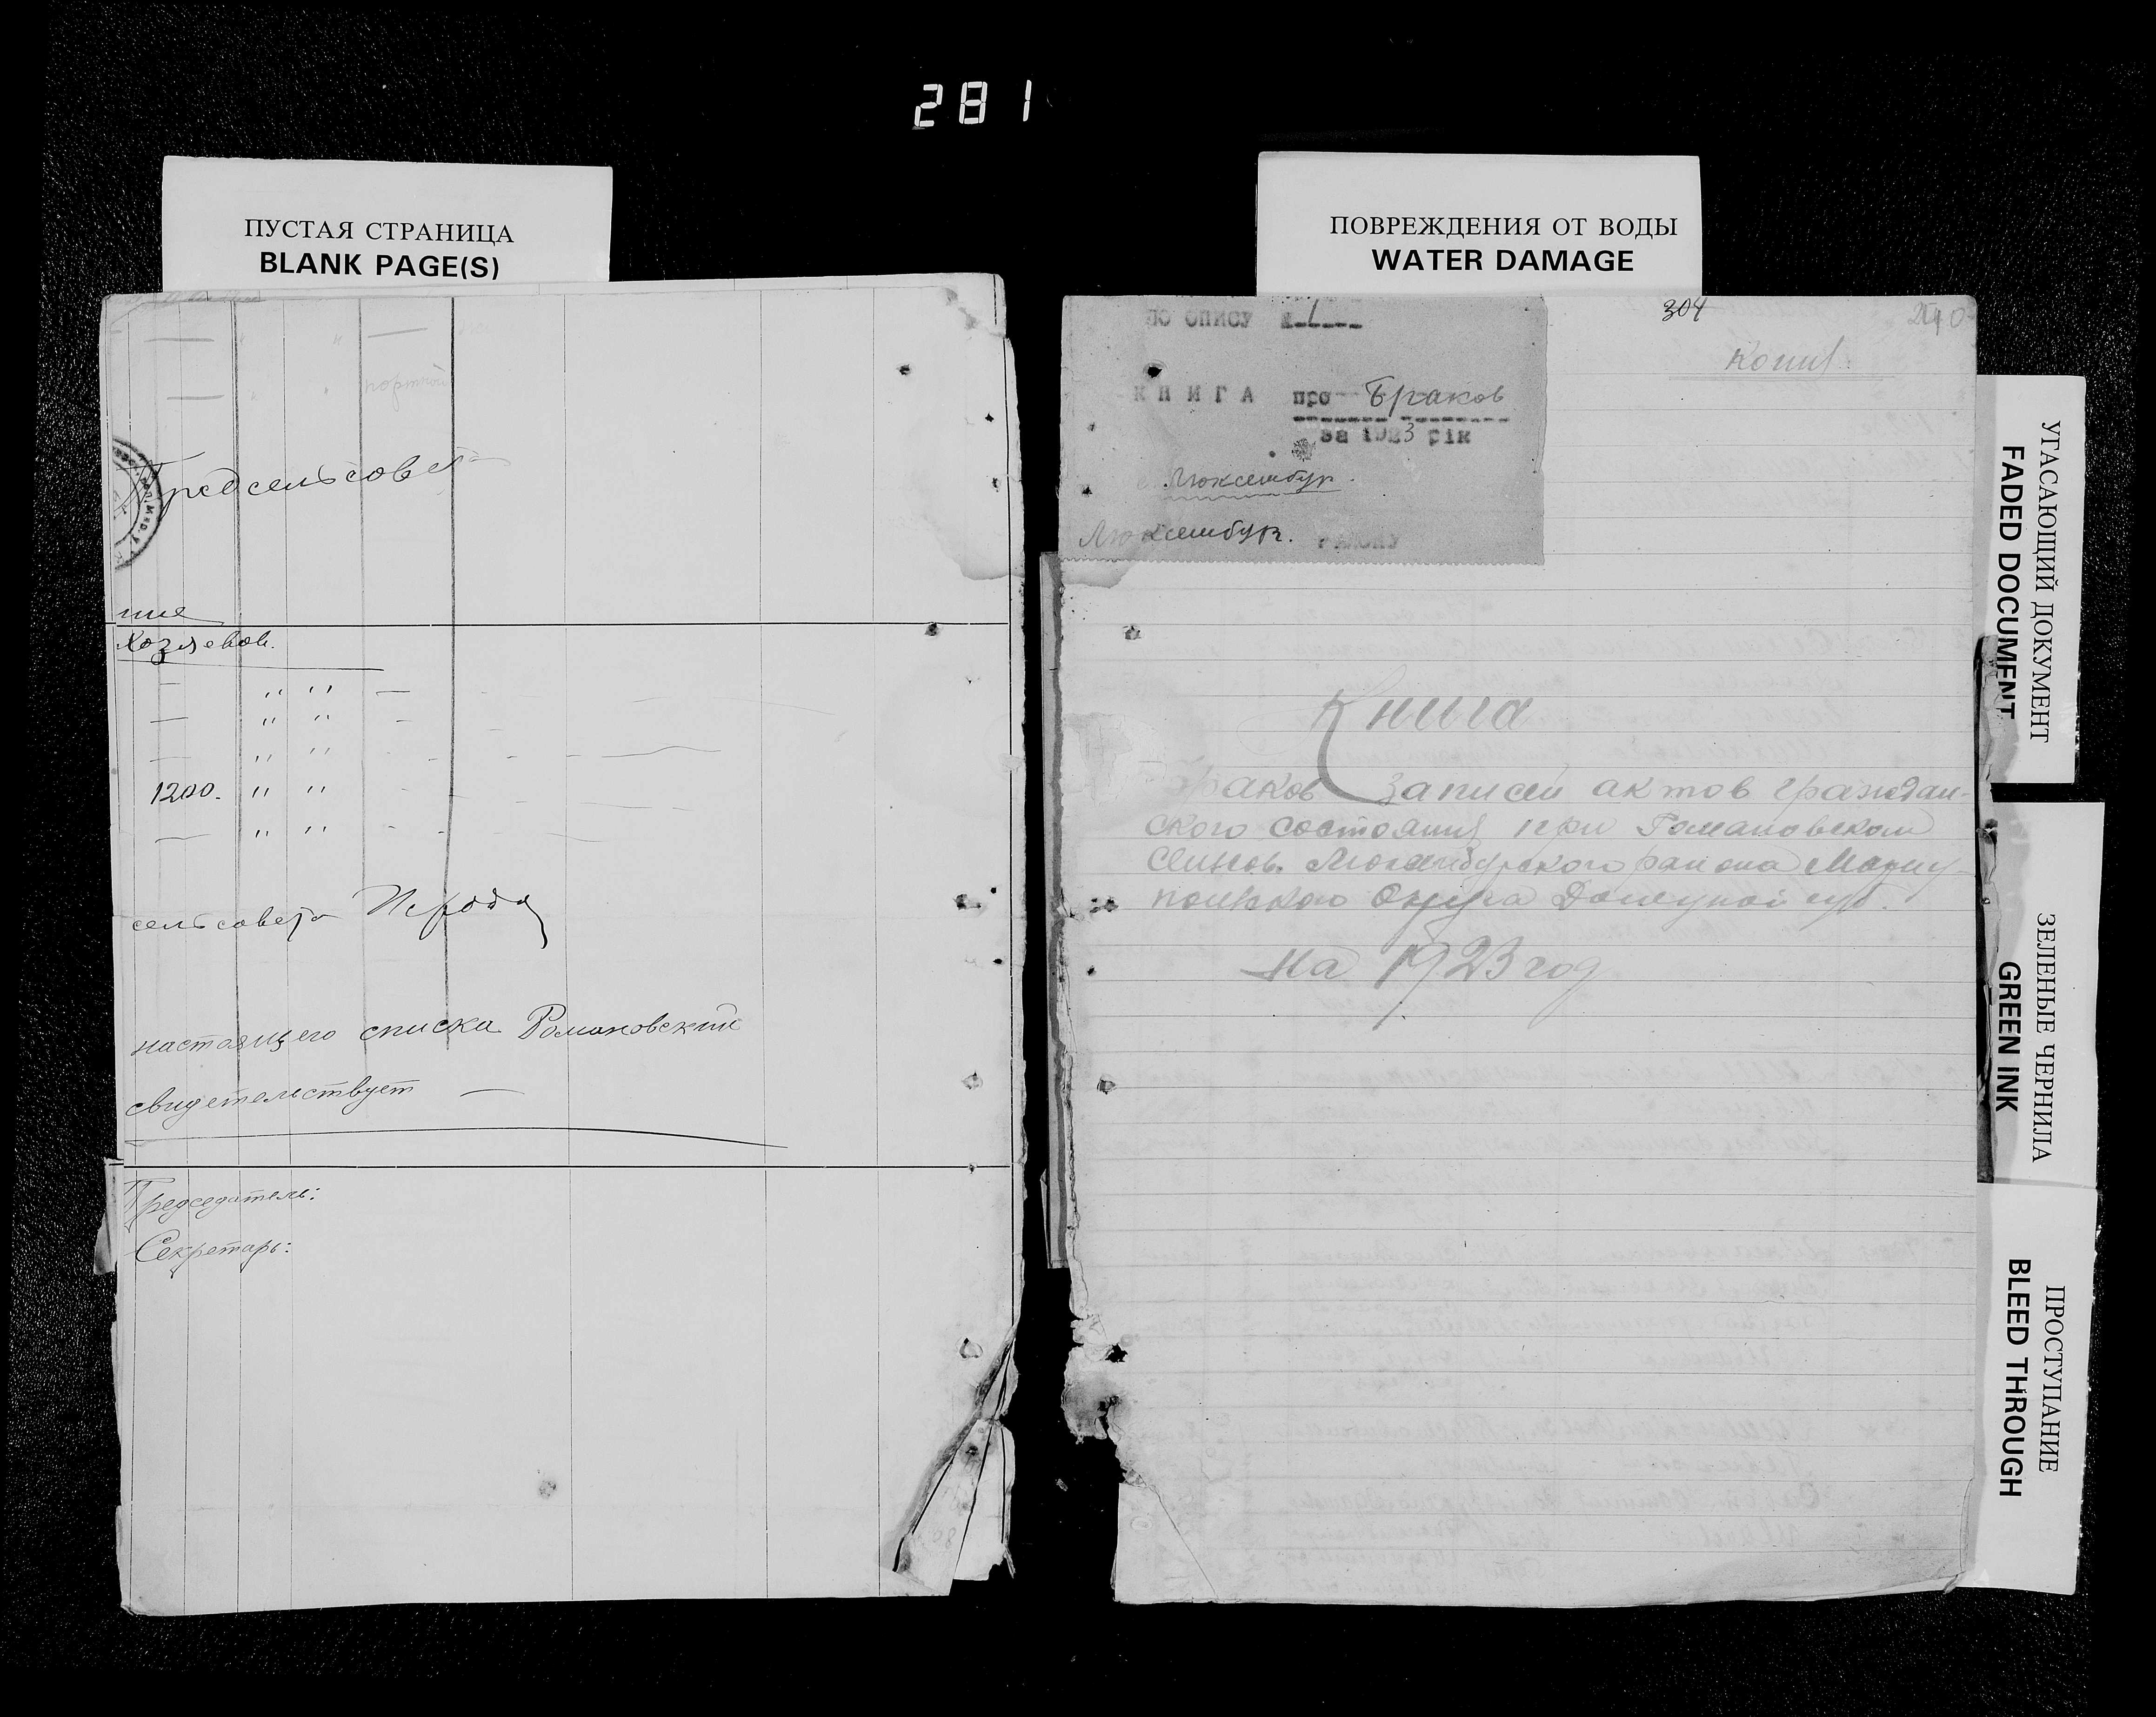 281
ПУСТАЯ СТРАНИЦА
BLANK PAGE(S)
портной
Предсельсовета
ние
Хозяевов.
" "
" "
" "
1200. " "
" "
сельсовета
настоящего списка Романовский
свидетельствует —
Председатель:
Секретарь:
ПОВРЕЖДЕНИЯ ОТ ВОДЫ
WATER DAMAGE
ПО ОПИСУ № 1
304
Копия
КНИГА про Браков
за 1923 рік
с. Люксембург.
Люксембург. РАЙОНУ
Книга
Браков записей актов граждан-
ского состояния при Романовском
Люксембургского района Мариу-
польского Округа Донецкой губ.
на 1923 год
УГАСАЮЩИЙ ДОКУМЕНТ
FADED DOCUMENT
ЗЕЛЕНЫЕ ЧЕРНИЛА
GREEN INK
ПРОСТУПАНИЕ
BLEED THROUGH